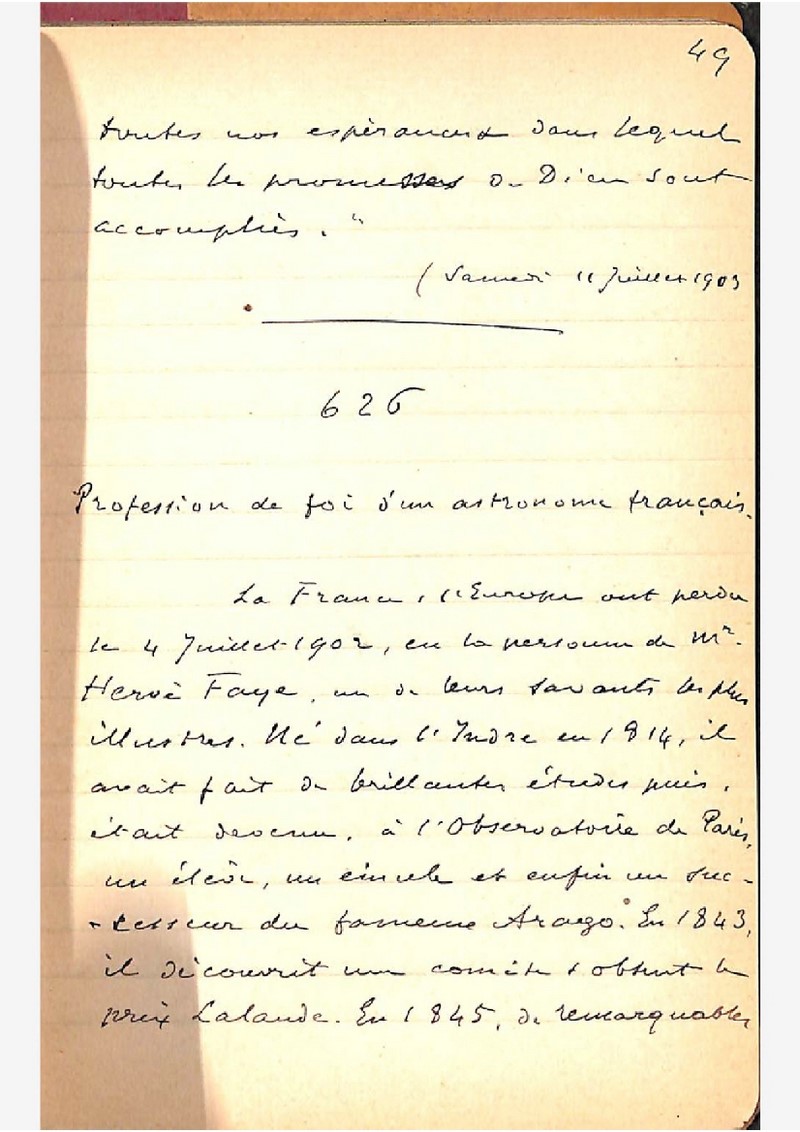 49
toutes nos espérances dans lequel
toutes les promesses de Dieu sont
accomplies."
(Samedi 11 Juillet 1903
626
Profession de foi d'un astronome français.
La France, l'Europe ont perdu
le 4 Juillet 1902, en la personne de Mr.
Hervé Faye, un de leurs savants les plus
illustres. Né dans l'Indre en 1814, il
avait fait de brillantes études puis,
était devenu, à l'Observatoire de Paris,
un élève, un émule et enfin un suc-
-cesseur du fameux Arago. En 1843,
il découvrit une comète & obtint le
prix Lalande. En 1845, de remarquables